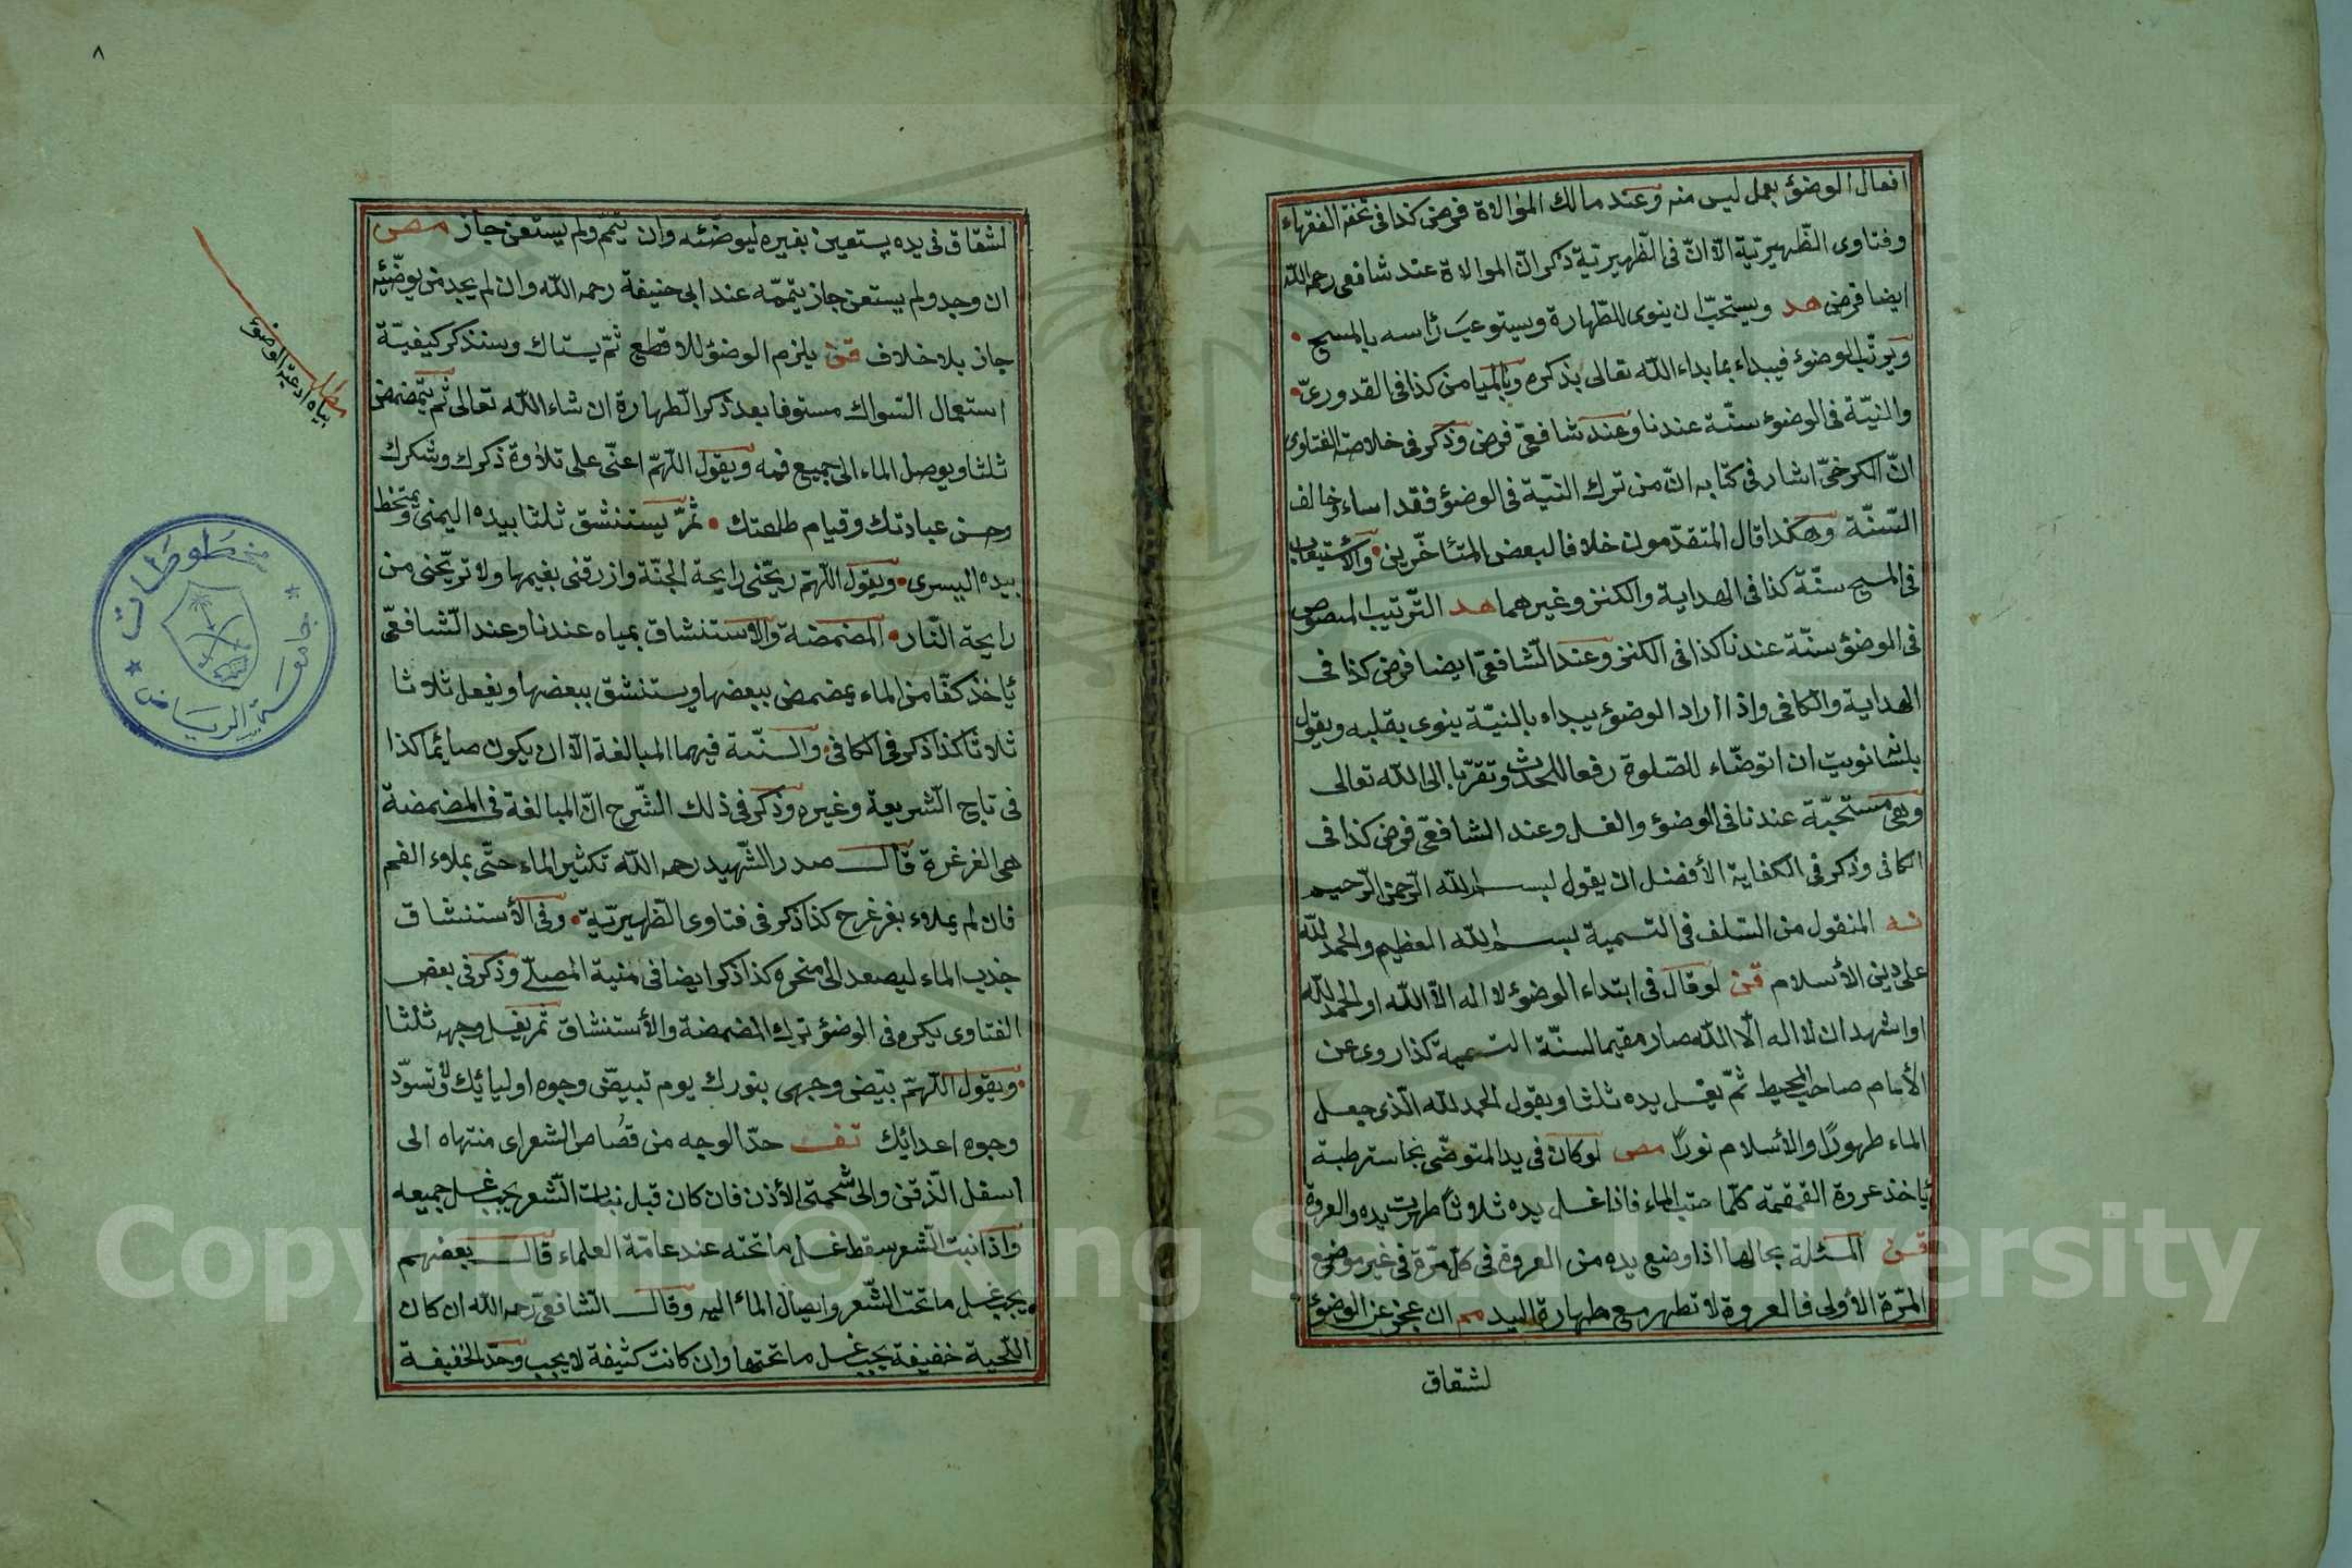 افعال الوضوء بعمل ليس منه وعند مالك الموالاة فرض كذا فى تحفة الفقهاء
وفتاوى الظّهيريّة الاّ انّ فى الظّهيريّة ذكر انّ الموالاة عند شافعى رحمه الله
ايضا فرض هد ويستحبّ ان ينوى للطّهارة ويستوعب رأسه بالمسح
ويرتّب الوضوء فيبداء بما بداء الله تعالى بذكره وبالميامن كذا فى القدورىّ
والنيّة فى الوضوء سنّة عندنا وعند شافعىّ فرض وذكر فى خلاصة الفتاوى
انّ الكرخىّ اشار فى كتابه انّ من ترك النيّة فى الوضوء فقد اساء وخالف
السّنّة وهكذا قال المتقدّمون خلافا لبعض المتأخّرين والأستيعاب
فى المسح سنّة كذا فى الهداية والكنز وغيرهما هد التّرتيب المنصوص
فى الوضوء سنّة عندنا كذا فى الكنز وعند الشّافعىّ ايضا فرض كذا فى
الهداية والكافى واذا اراد الوضوء يبداء بالنيّة ينوى بقلبه ويقول
بلسانه نويت ان اتوضّاء للصّلوة رفعا للحدث وتقرّبا الى الله تعالى
وهى مستحبّة عندنا فى الوضوء والغسل وعند الشافعىّ فرض كذا فى
الكافى وذكر فى الكفاية الأفضل ان يقول بسم الله الرّحمن الرّحيم
نه المنقول من السّلف فى التسمية بسم الله العظيم والحمد لله
على دين الأسلام قن لو قال فى ابتداء الوضوء لا اله الاّ الله او الحمد لله
او اشهد ان لا اله الّا الله صار مقيما لسنّة التسمية كذا روى عن
الأمام صاحب المحيط ثمّ يغسل يده ثلثا ويقول الحمد لله الّذى جعل
الماء طهورًا والأسلام نورًا مص لو كان فى يد المتوضّى نجاسة رطبة
يأخذ عروة القمقمة كلّما صبّ الماء فاذا غسل يده ثلاثاً طهرت يده والعروة
قن المسئلة بحالها اذا وضع يده من العروة فى كلّ مرّة فى غير موضع
المرّة الأولى فالعروة لا تطهر مع طهارة اليد مم ان عجز عن الوضوء
لشقاق
٨
لشقاق فى يده يستعين بغيره ليوضّئه وان تيمّم ولم يستعن جاز مص
ان وجد ولم يستعن جاز تيمّمه عند ابى حنيفة رحمه الله وان لم يجد من يوضّئه
جاز بلا خلاف قن يلزم الوضوء للاقطع ثمّ يستاك وسنذكر كيفيّة
استعمال السّواك مستوفا بعد ذكر الطّهارة ان شاء الله تعالى ثم يتمضمض
ثلثا ويوصل الماء الى جميع فمه ويقول اللّهمّ اعنّى على تلاوة ذكرك وشكرك
وحسن عبادتك وقيام طاعتك ثمّ يستنشق ثلثا بيده اليمنى ويمتخط
بيده اليسرى ويقول اللّهمّ ريّحنى رايحة الجنّة وارزقنى بنعيمها ولا تريّحنى من
رايحة النّار المضمضة والاستنشاق بمياه عندنا وعند الشّافعىّ
يأخذ كفّا من الماء يمضمض ببعضها ويستنشق ببعضها ويفعل ثلاثا
ثلاثا كذا ذكر فى الكافى والسنّة فيهما المبالغة الاّ ان يكون صائما كذا
فى تاج الشّريعة وغيره وذكر فى ذلك الشّرح انّ المبالغة فى المضمضة
هى الغرغرة قال صدر الشّهيد رحمه الله تكثير الماء حتّى يملاء الفم
فان لم يملاء بغرغرح كذا ذكر فى فتاوى الظهيريّة وفى الأستنشاق
جذب الماء ليصعد الى منخره كذا ذكر ايضا فى منية المصلّى وذكر فى بعض
الفتاوى يكره فى الوضوء ترك المضمضة والأستنشاق ثم يغسل وجهه ثلثا
ويقول اللّهمّ بيّض وجهى بنورك يوم تبيضّ وجوه اوليائك ولا تسوّد
وجوه اعدائك تف حدّ الوجه من قصاص الشعر اى منتهاه الى
اسفل الذّقن والى شحمتى الأذن فان كان قبل نبات الشّعر يجب غسل جميعه
واذا نبت الشّعر سقط غسل ما تحته عند عامّة العلماء قال بعضهم
يجب غسل ما تحت الشّعر وايصال الماء اليه وقال الشافعىّ رحمه الله ان كان
اللّحية خفيفة يجب غسل ما تحتها وان كانت كثيفة لا يجب وحدّ الخفيفة
مطلب
بيان ادعية الوضوء
مخطوطات
جامعة الرياض
Copyright © King Saud University